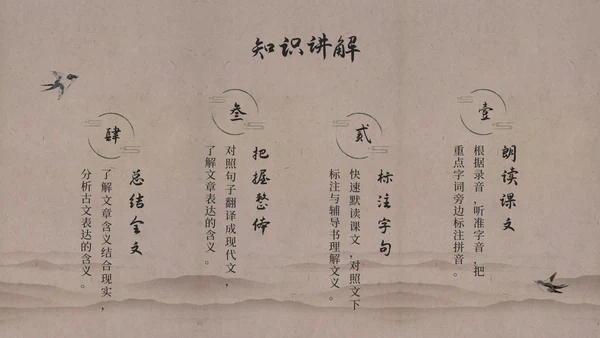 知识讲解
壹
朗读课文
根据录音,听准字音,把
重点字词旁边标注拼音。
贰
标注字句
快速默读课文,对照文下
标注与辅导书理解文义。
叁
把握整体
对照句子翻译成现代文,
了解文章表达的含义。
肆
总结全文
了解文章含义结合现实,
分析古文表达的含义。